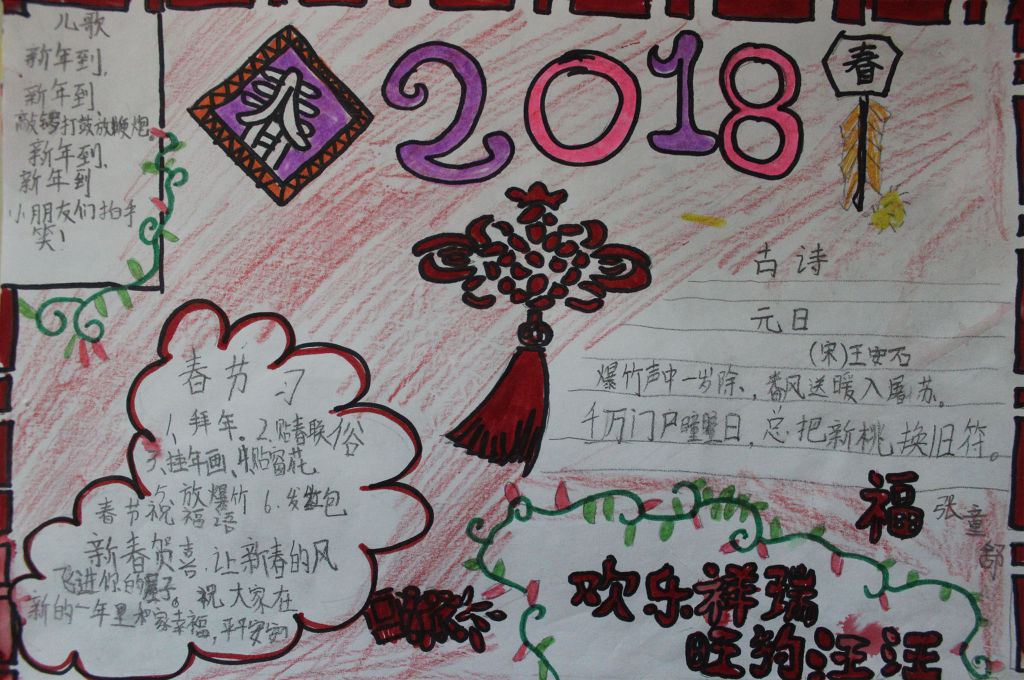 儿歌
新年到,
新年到
敲锣打鼓放鞭炮,
新年到,
新年到
小朋友们拍手
笑!
春
2018
春
古诗
元日
(宋)王安石
爆竹声中一岁除,春风送暖入屠苏。
千万门户曈曈日,总把新桃换旧符。
春节习俗
1、拜年。2.贴春联
3、挂年画、4贴窗花
5、放爆竹 6.发红包
春节祝福语
新春贺喜,让新春的风
飞进你的屋子。祝大家在
新的一年里和家幸福,平平安安
福
张童舒
欢乐祥瑞
旺狗汪汪